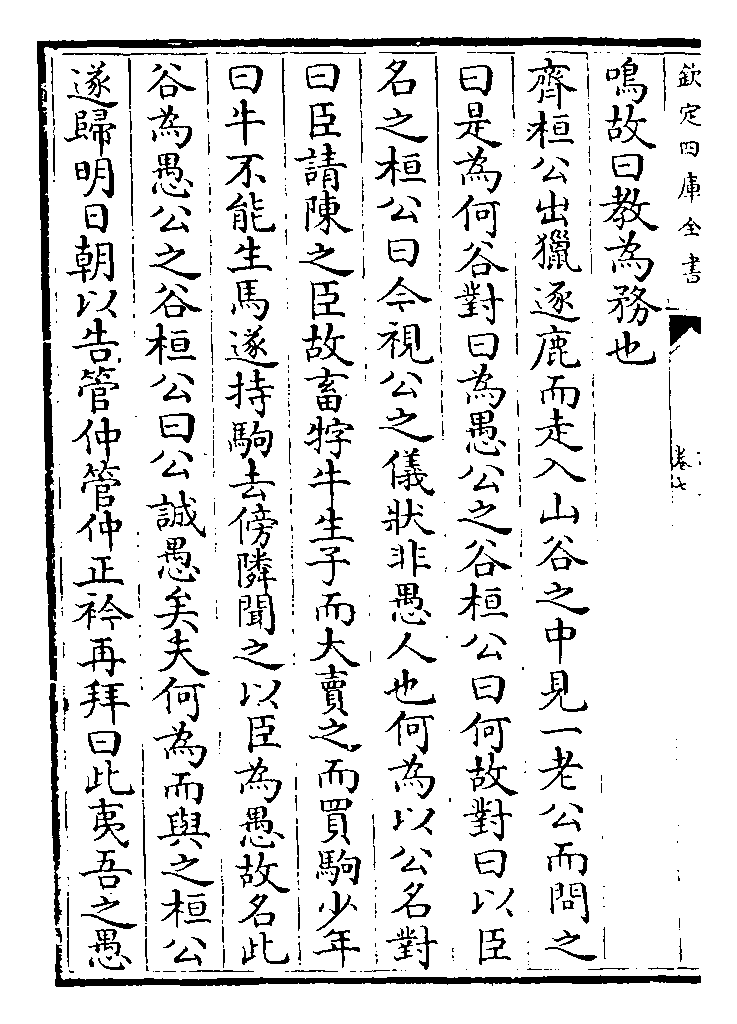 欽定四庫全書
卷七
鳴故曰教為務也
齊桓公出獵逐鹿而走入山谷之中見一老公而問之
曰是為何谷對曰為愚公之谷桓公曰何故對曰以臣
名之桓公曰今視公之儀狀非愚人也何為以公名對
曰臣請陳之臣故畜牸牛生子而大賣之而買駒少年
曰牛不能生馬遂持駒去傍隣聞之以臣為愚故名此
谷為愚公之谷桓公曰公誠愚矣夫何為而與之桓公
遂歸明日朝以告管仲管仲正衿再拜曰此夷吾之愚